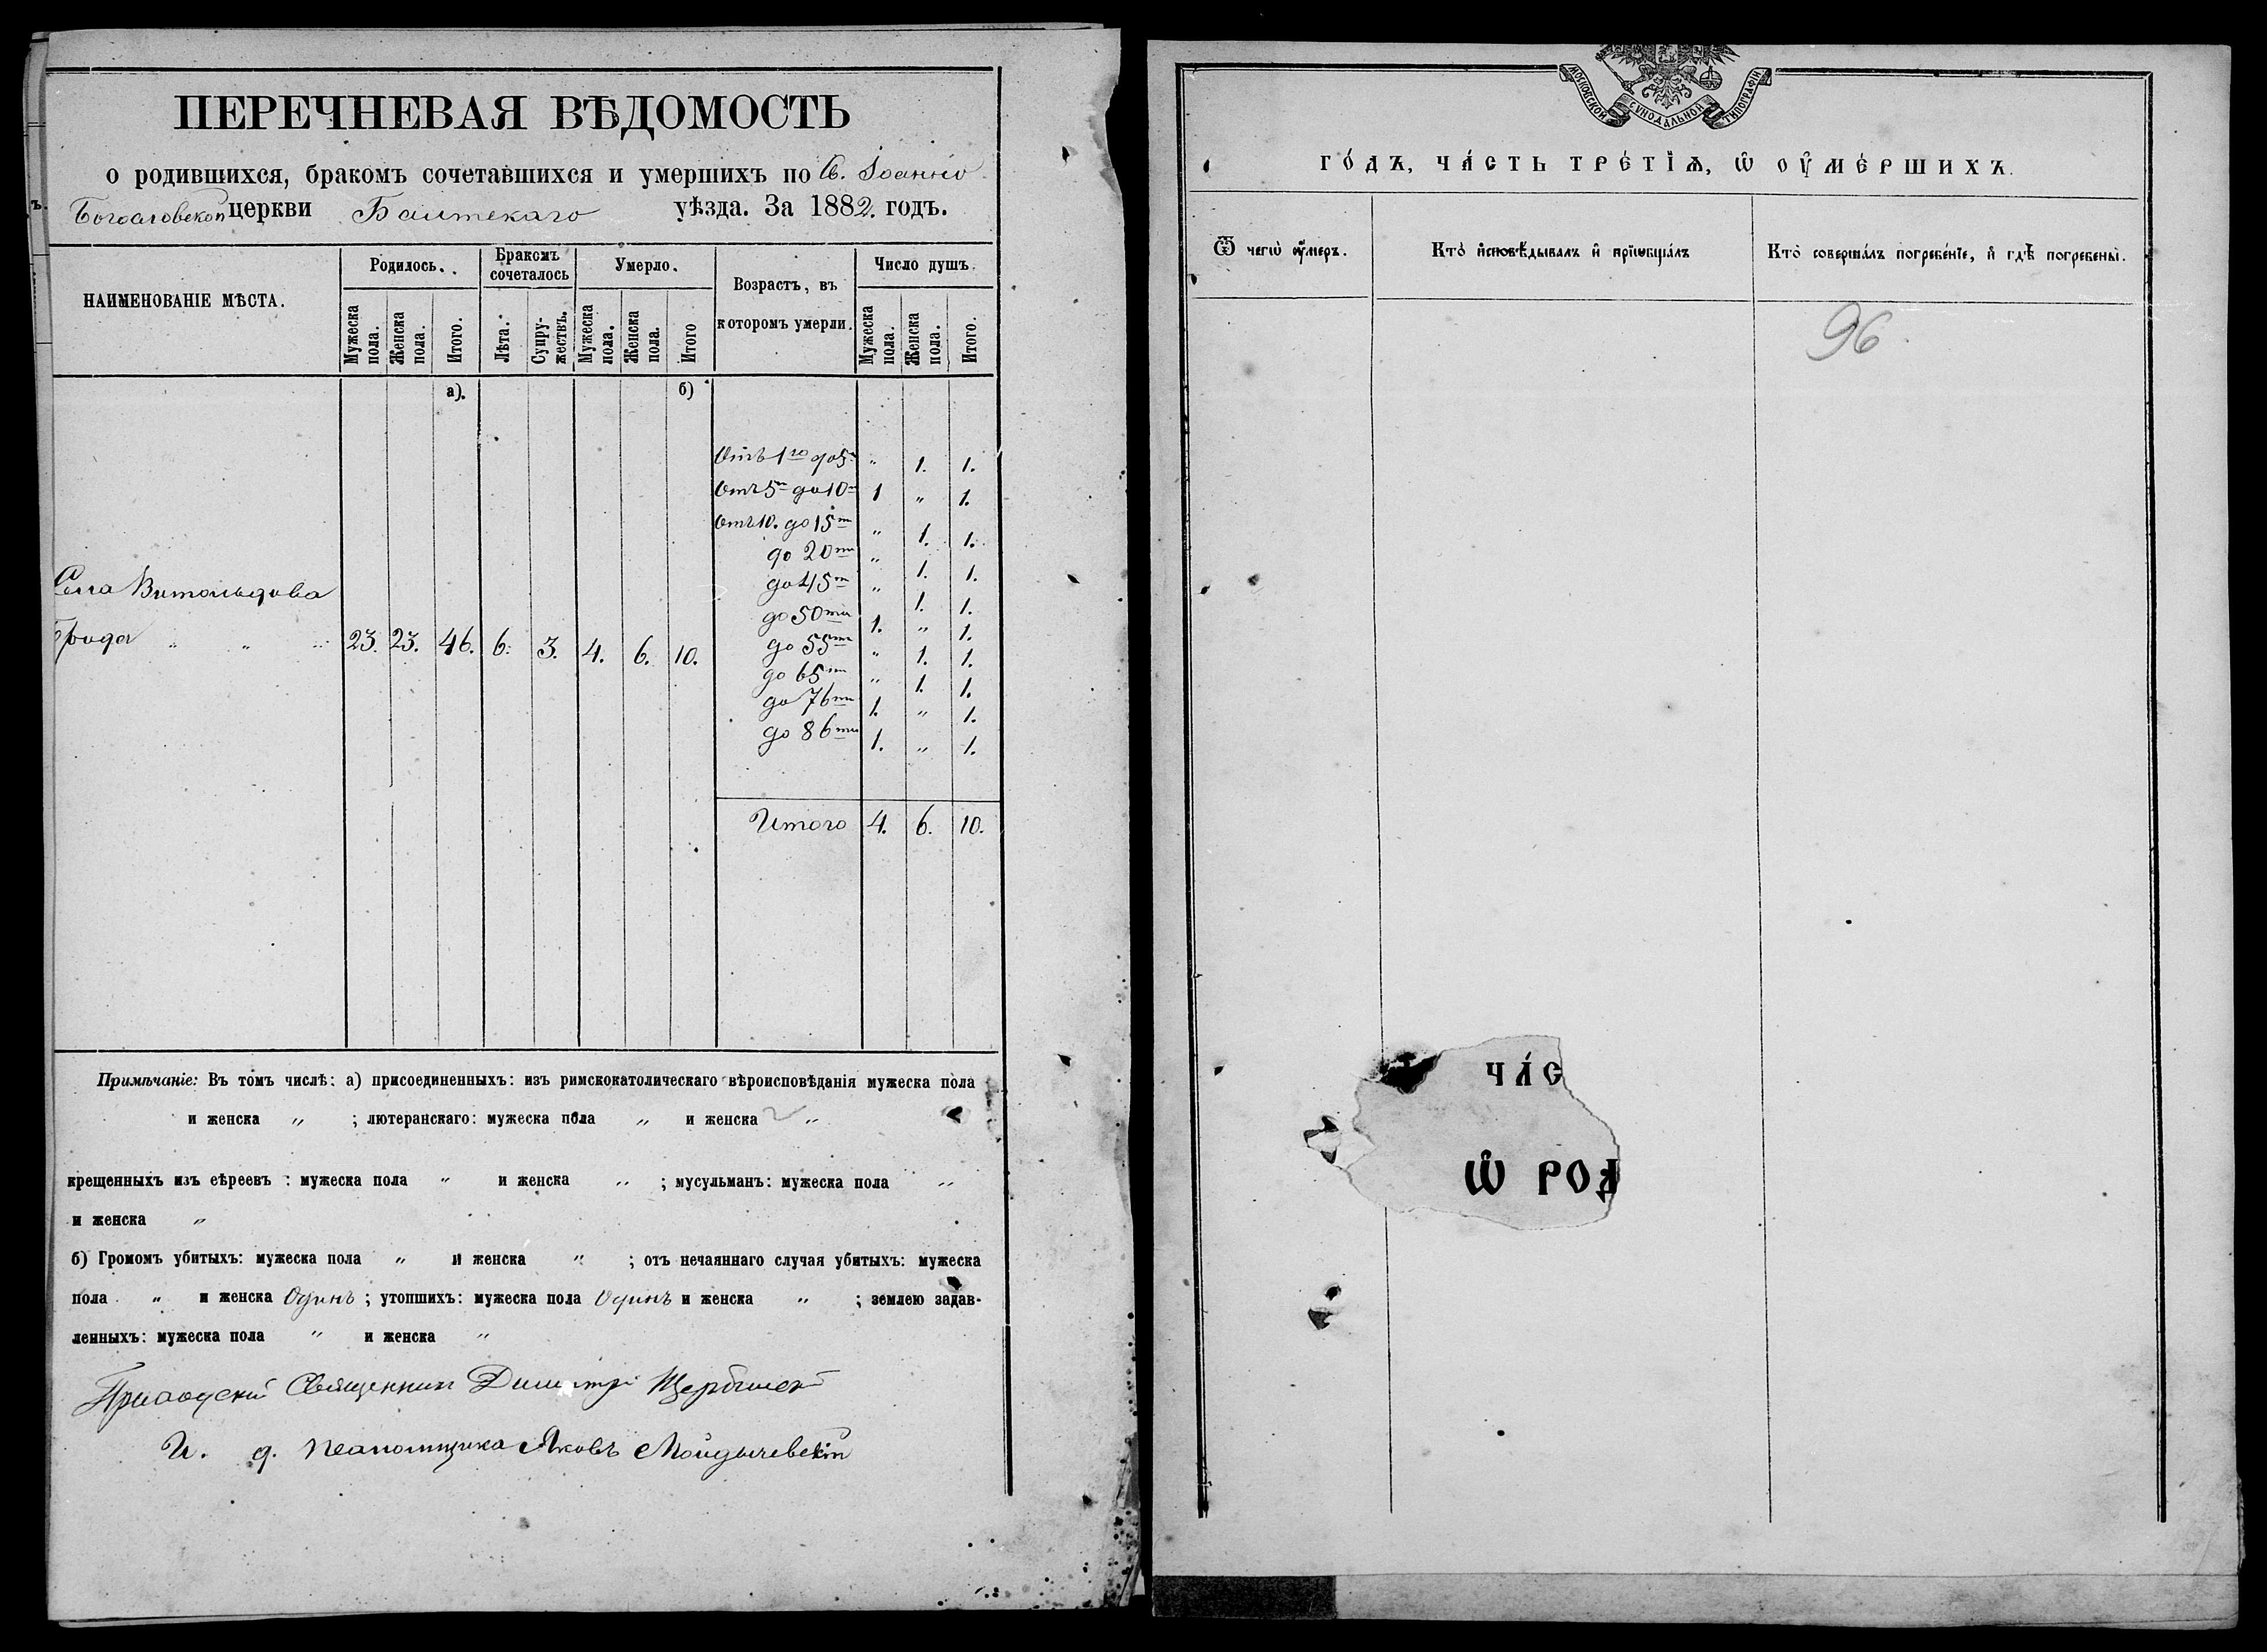 ПЕРЕЧНЕВАЯ ВѢДОМОСТЬ
о родившихся, бракомъ сочетавшихся и умершихъ по Св. Іоанно
Богословской церкви Балтскаго уѣзда. За 1882. годъ.
НАИМЕНОВАНІЕ МѢСТА.
Родилось.
Бракомъ сочеталось
Умерло.
Возрастъ, въ которомъ умерли.
Число душъ.
Мужеска пола. Женска пола. Итого. Лѣта. Супружествъ. Мужеска пола. Женска пола. Итого Мужеска пола. Женска пола. Итого.
а). б)
Отъ 1го до 5 " 1. 1.
Отъ 5ти до 10ти 1 " 1.
Отъ 10. до 15ти " 1. 1.
до 20ти " 1. 1.
до 45ти " 1. 1.
до 50ти 1. " 1.
до 55ти " 1. 1.
до 65ти " 1. 1.
до 76ти 1. " 1.
до 86ти 1. " 1.
Села Витольдова
Брода " " " 23. 23. 46. 6. 3. 4. 6. 10.
Итого 4. 6. 10.
Примѣчаніе: Въ томъ числѣ: а) присоединенныхъ: изъ римскокатолическаго вѣроисповѣданія мужеска пола
и женска " ; лютеранскаго: мужеска пола " и женска "
крещенныхъ изъ еѣреевъ : мужеска пола " и женска " ; мусульманъ: мужеска пола "
и женска "
б) Громомъ убитыхъ: мужеска пола " и женска " ; отъ нечаяннаго случая убитыхъ: мужеска
пола " и женска Одинъ ; утопшихъ: мужеска пола Одинъ и женска " ; землею задав-
ленныхъ: мужеска пола " и женска "
Приходскій Священникъ Димитрій
И. д. псаломщика Яковъ
МОСКОВСКОЙ СѴНОДАЛЬНОЙ ТИПОГРАФІИ
го́дъ, ча́сть тре́тїѧ, ѡ҆ оу҆ме́ршихъ.
Ѿ чегѡ̀ оу҆́меръ.
Кто̀ и҆сповѣ́дывалъ и҆ прїѡбща́лъ
Кто̀ соверша́лъ погребе́нїе, и҆ гдѣ̀ погребены̀.
96
ча́с
ѡ҆ род